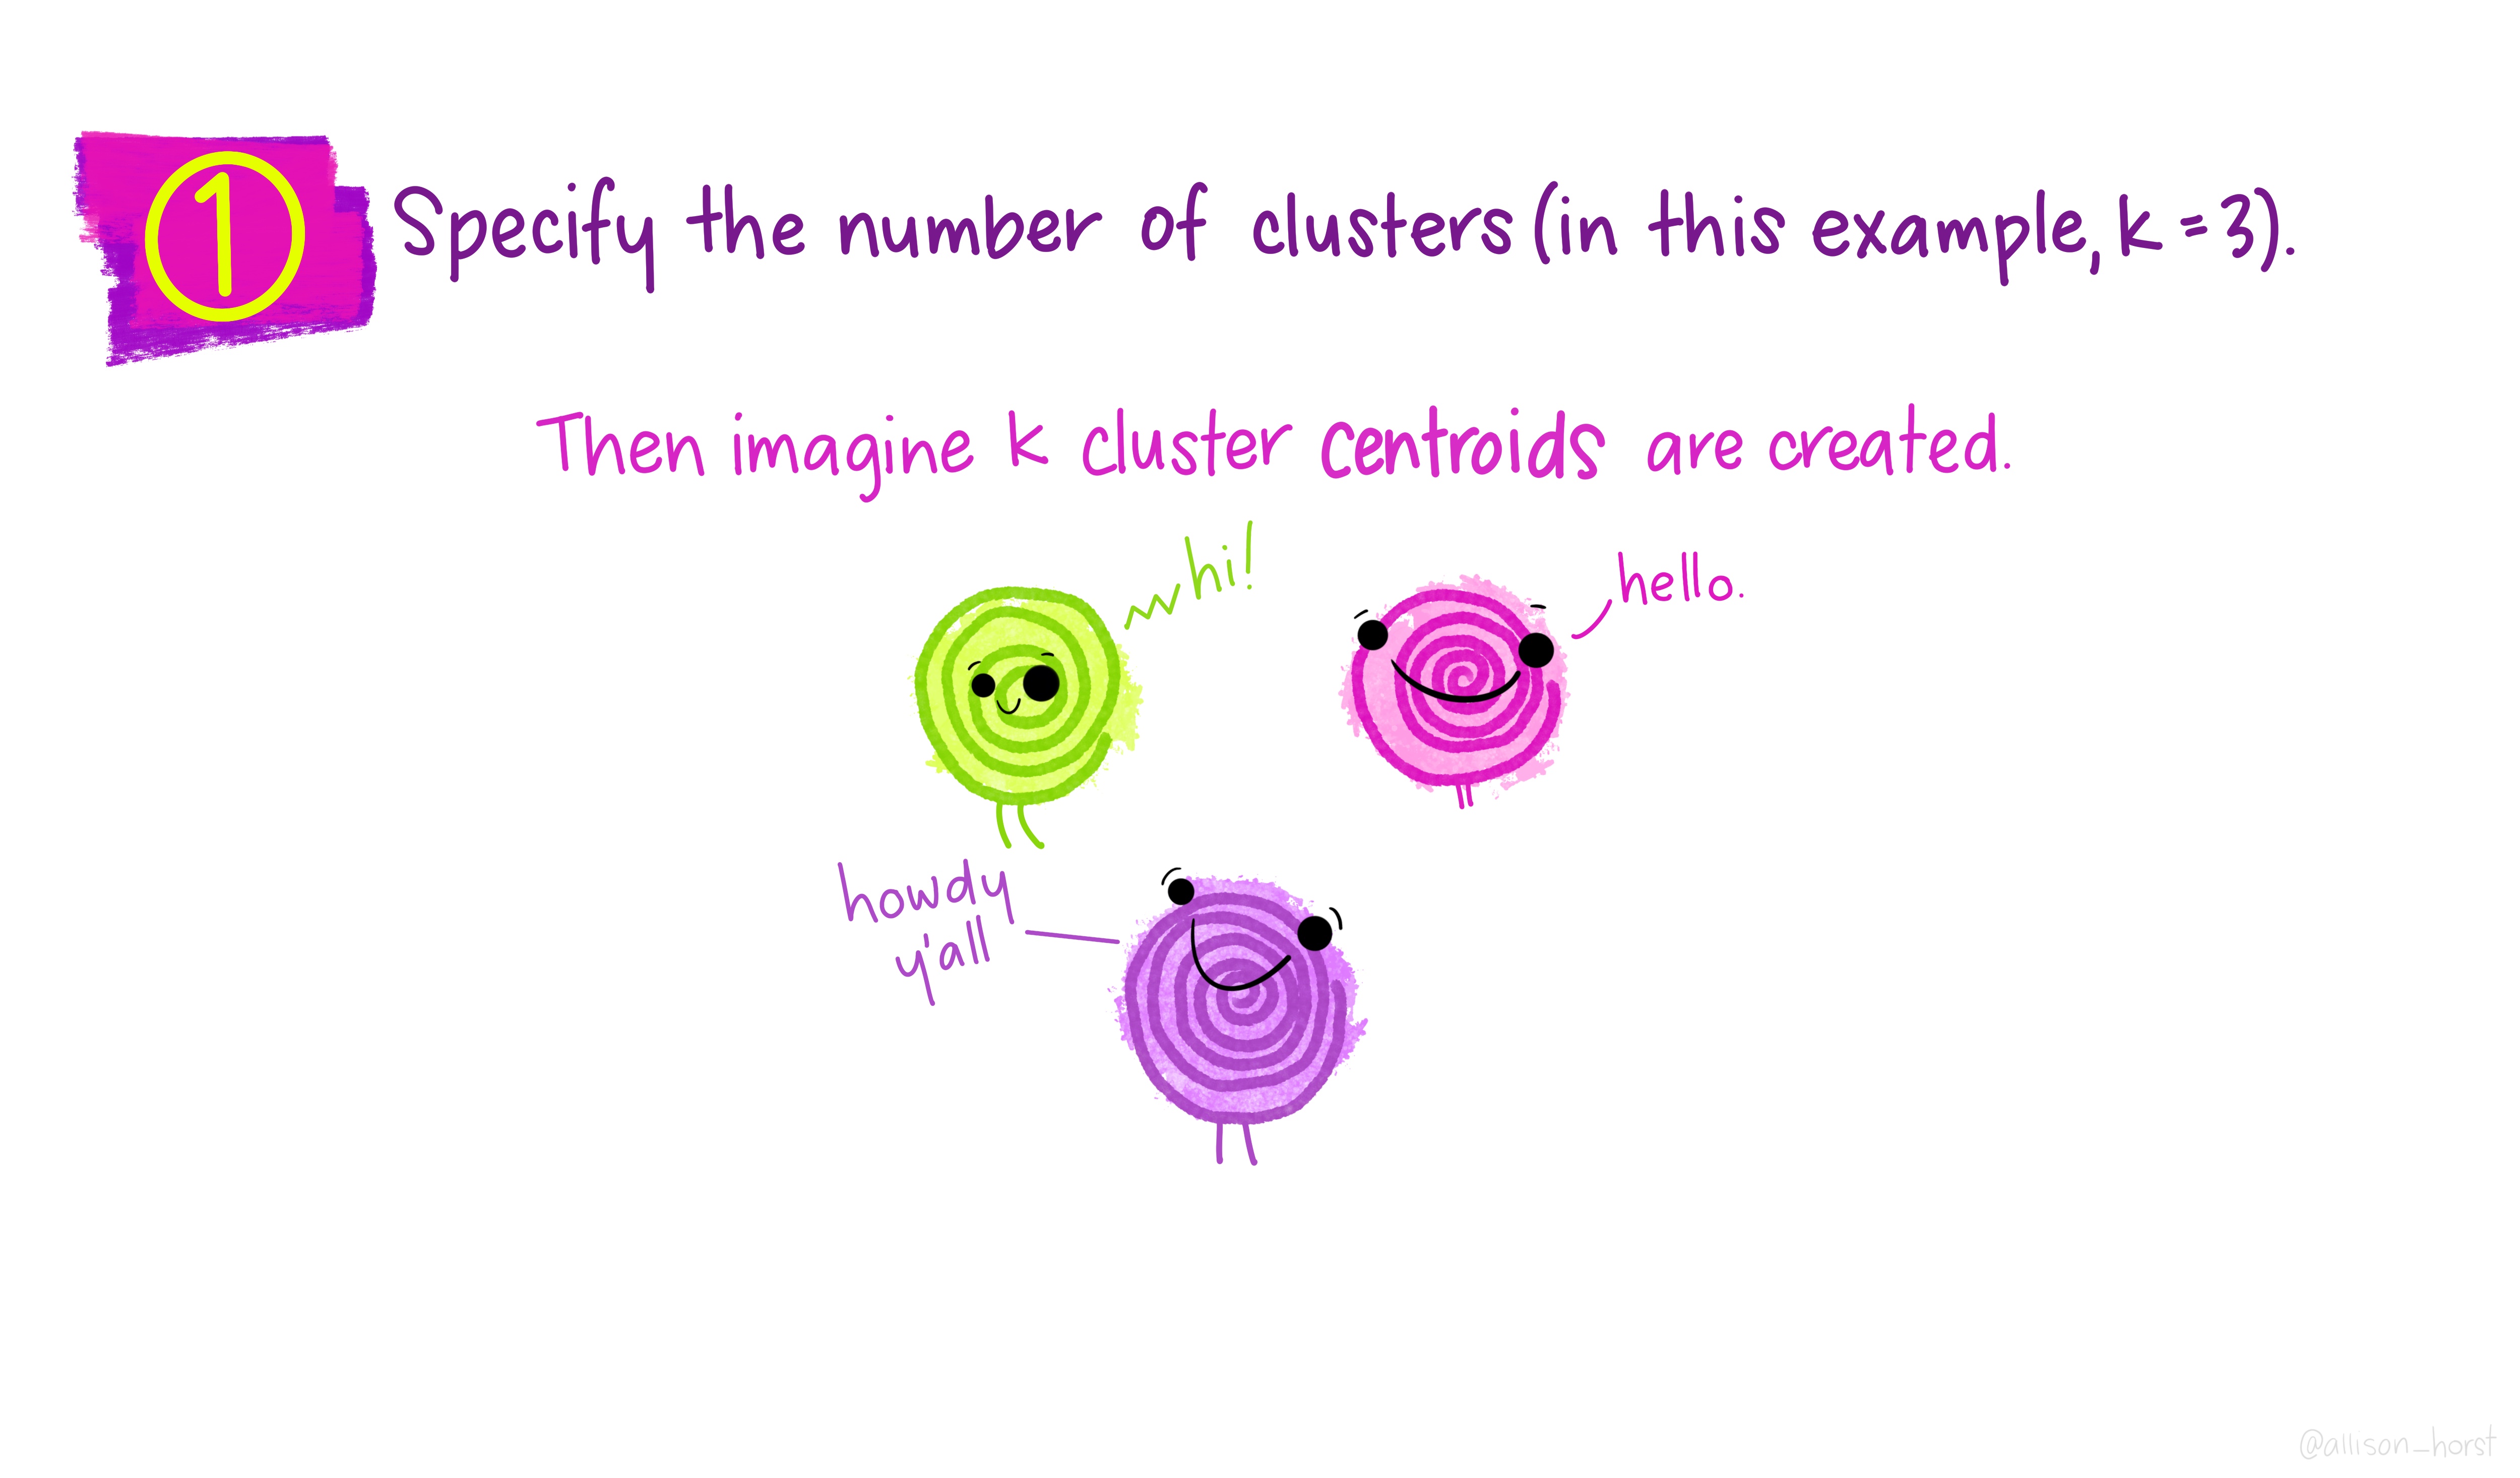 1 Specify the number of clusters (in this example, k = 3).
Then imagine k cluster centroids are created.
hi!
hello.
howdy
y'all
@allison_horst